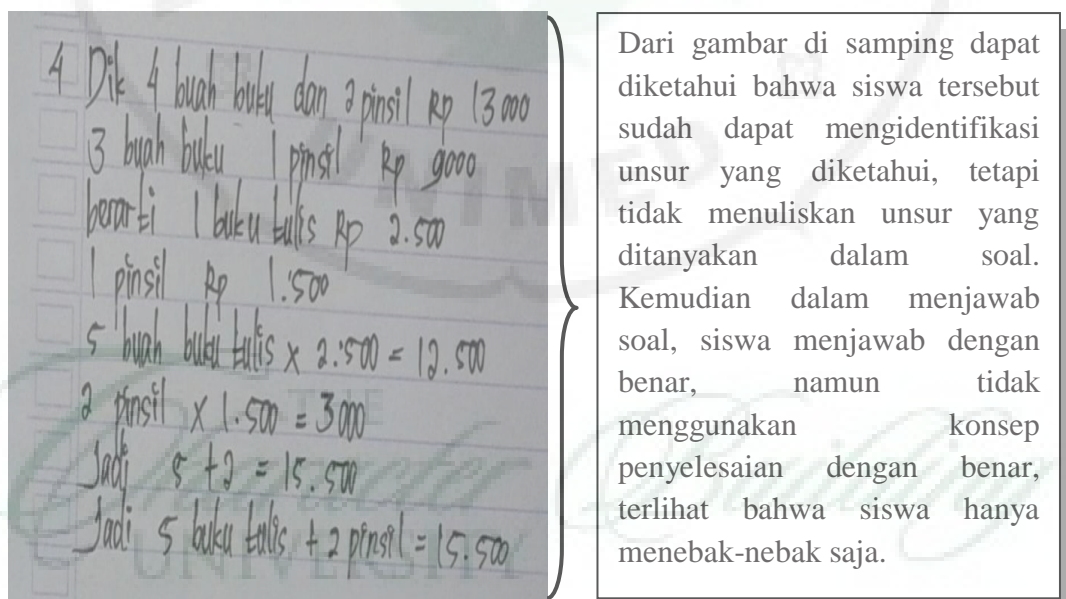 4 Dik 4 buah buku dan 2 pinsil Rp 13 000
3 buah buku 1 pinsil Rp 9000
berarti 1 buku tulis Rp 2.500
1 pinsil Rp 1.500
5 buah buku tulis x 2.500 = 12.500
2 pinsil x 1.500 = 3 000
Jadi 5 + 2 = 15.500
Jadi 5 buku tulis + 2 pinsil = 15.500
Dari gambar di samping dapat
diketahui bahwa siswa tersebut
sudah dapat mengidentifikasi
unsur yang diketahui, tetapi
tidak menuliskan unsur yang
ditanyakan dalam soal.
Kemudian dalam menjawab
soal, siswa menjawab dengan
benar, namun tidak
menggunakan konsep
penyelesaian dengan benar,
terlihat bahwa siswa hanya
menebak-nebak saja.
UNIMED
THE
Character Building
UNIVERSITY